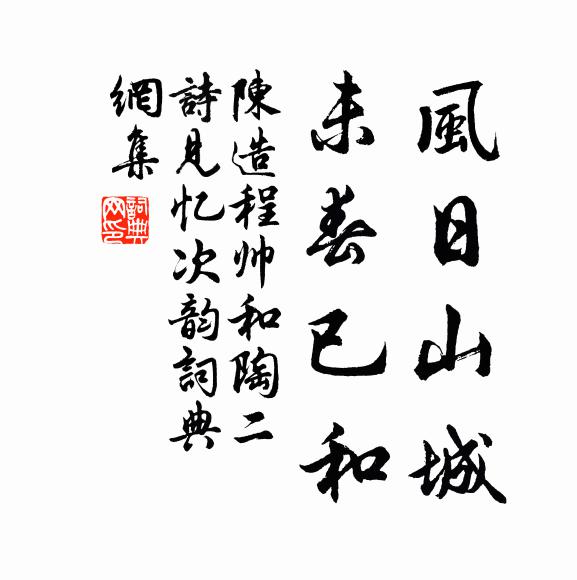 風日山城
未春已和
陳造程帅和陶二
詩見忆次韵詞典
網集
詞典
网印